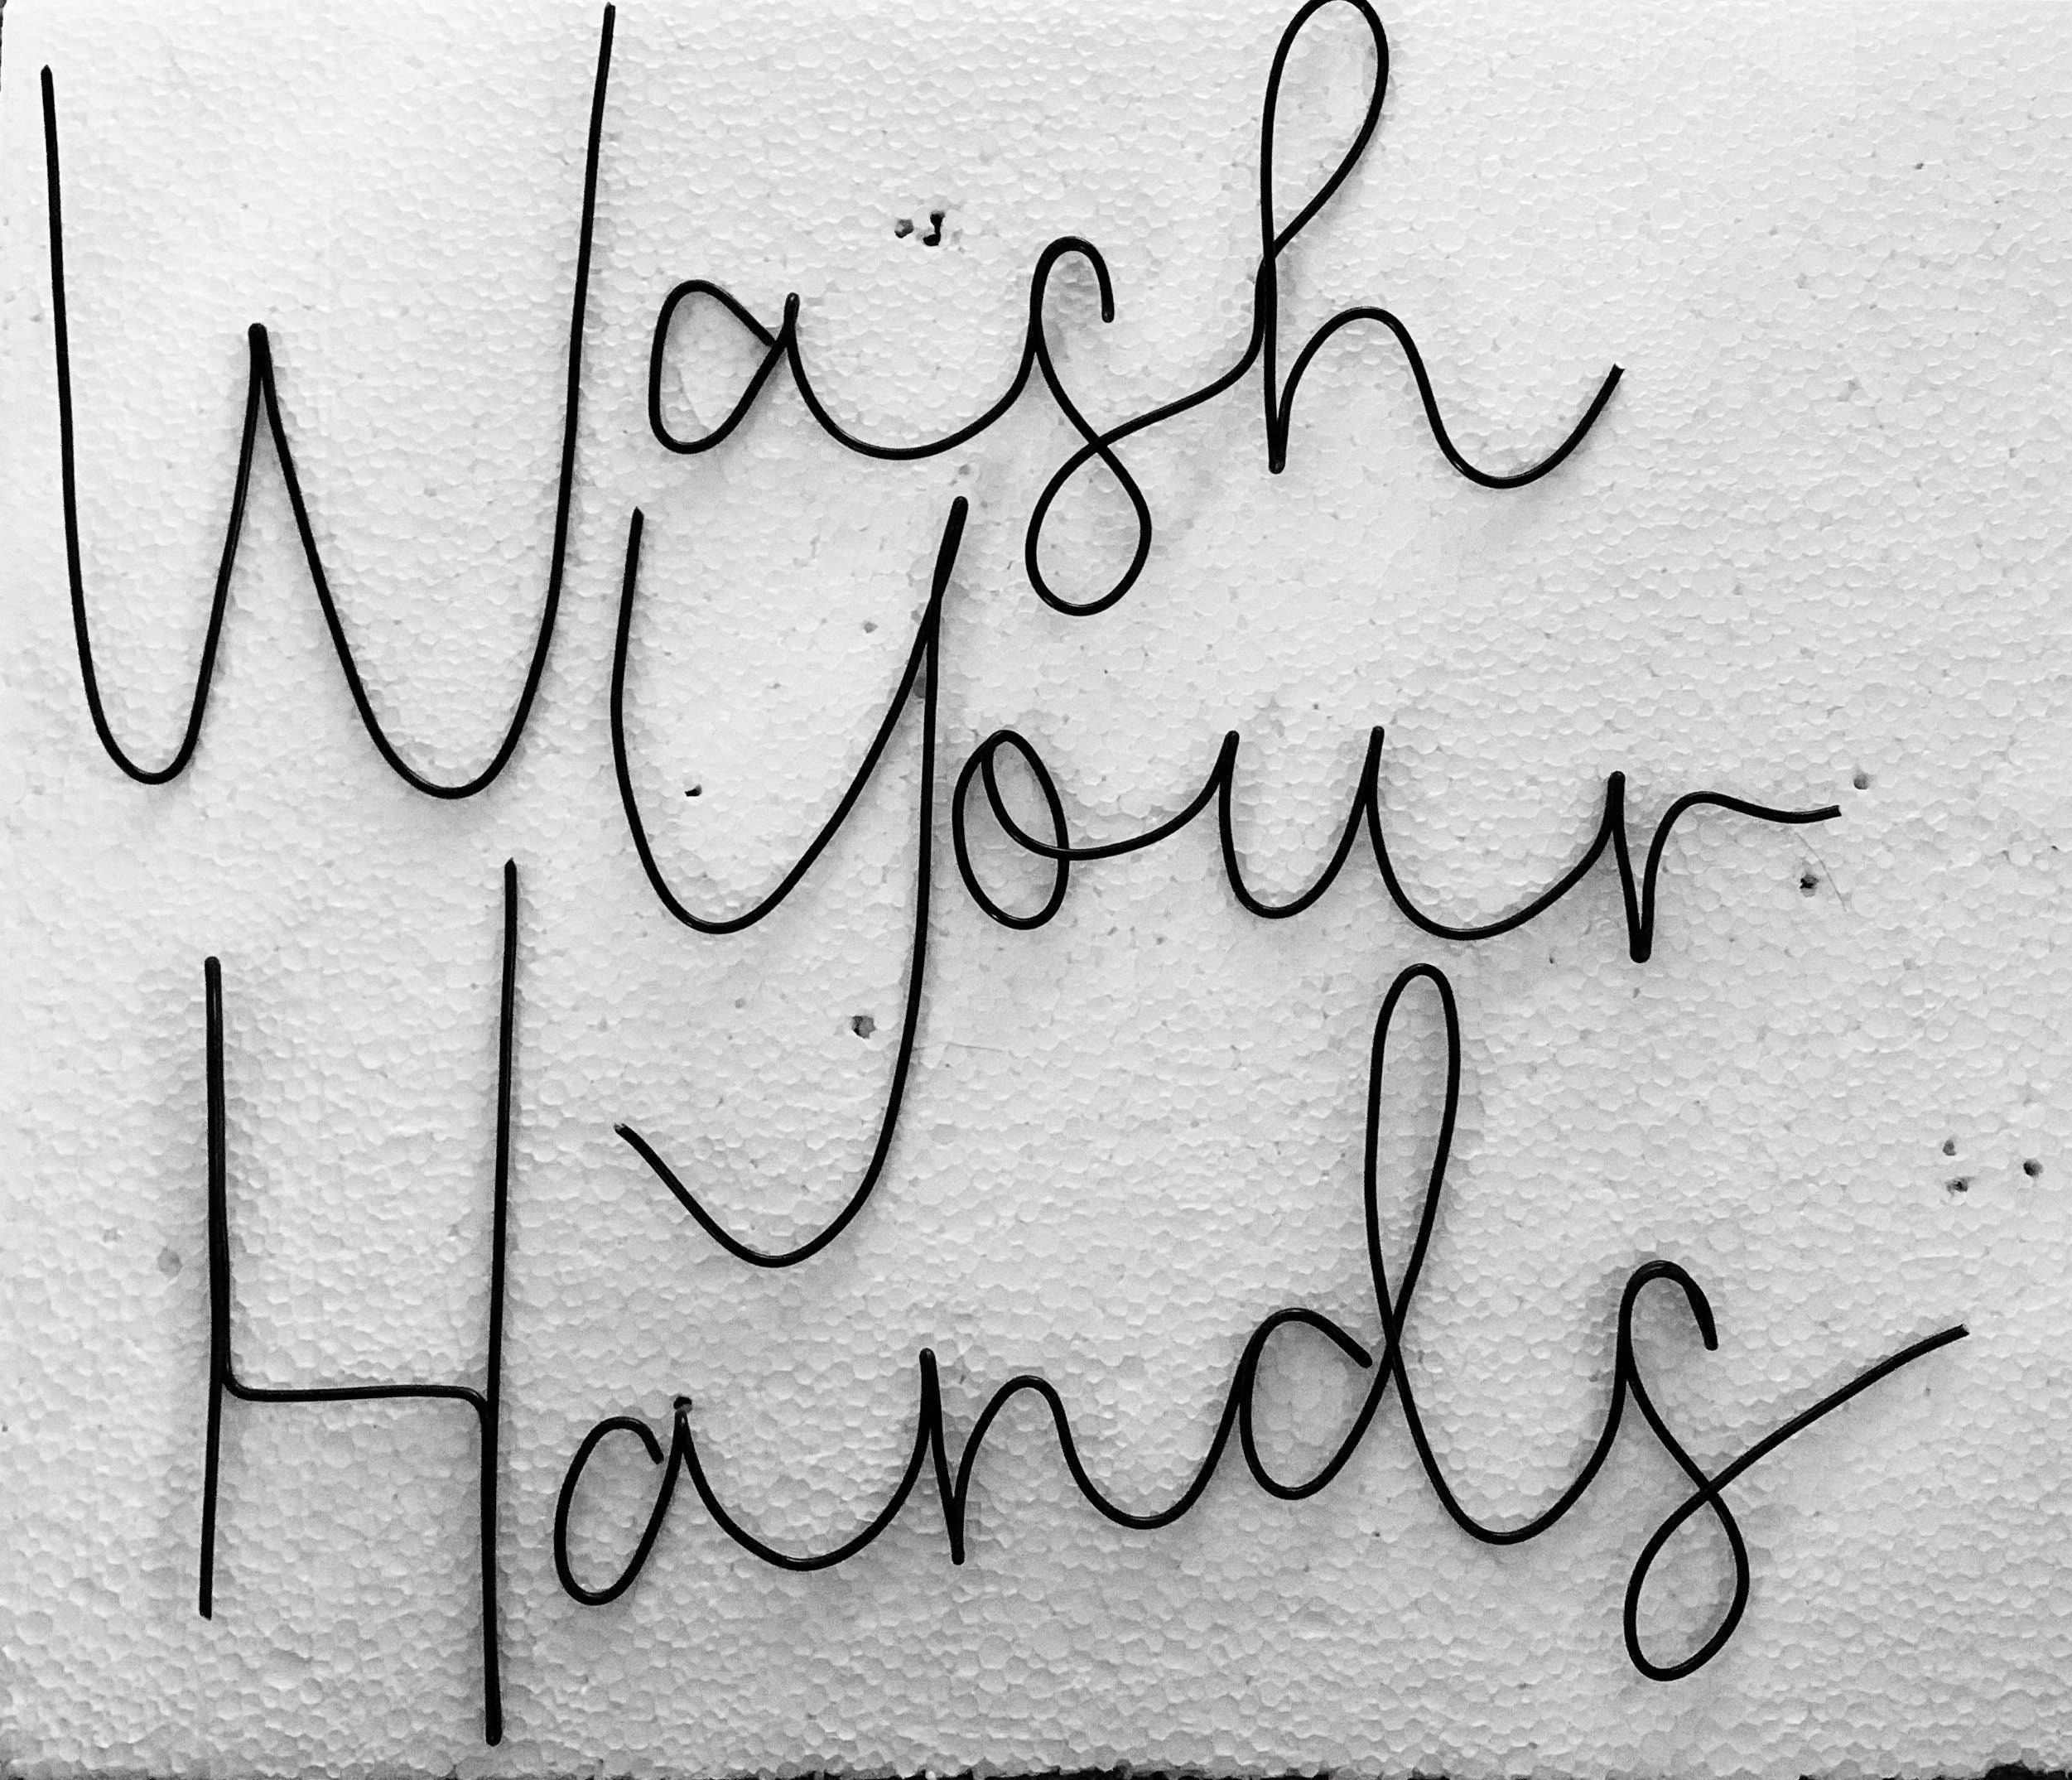 Wash
Your
Hands